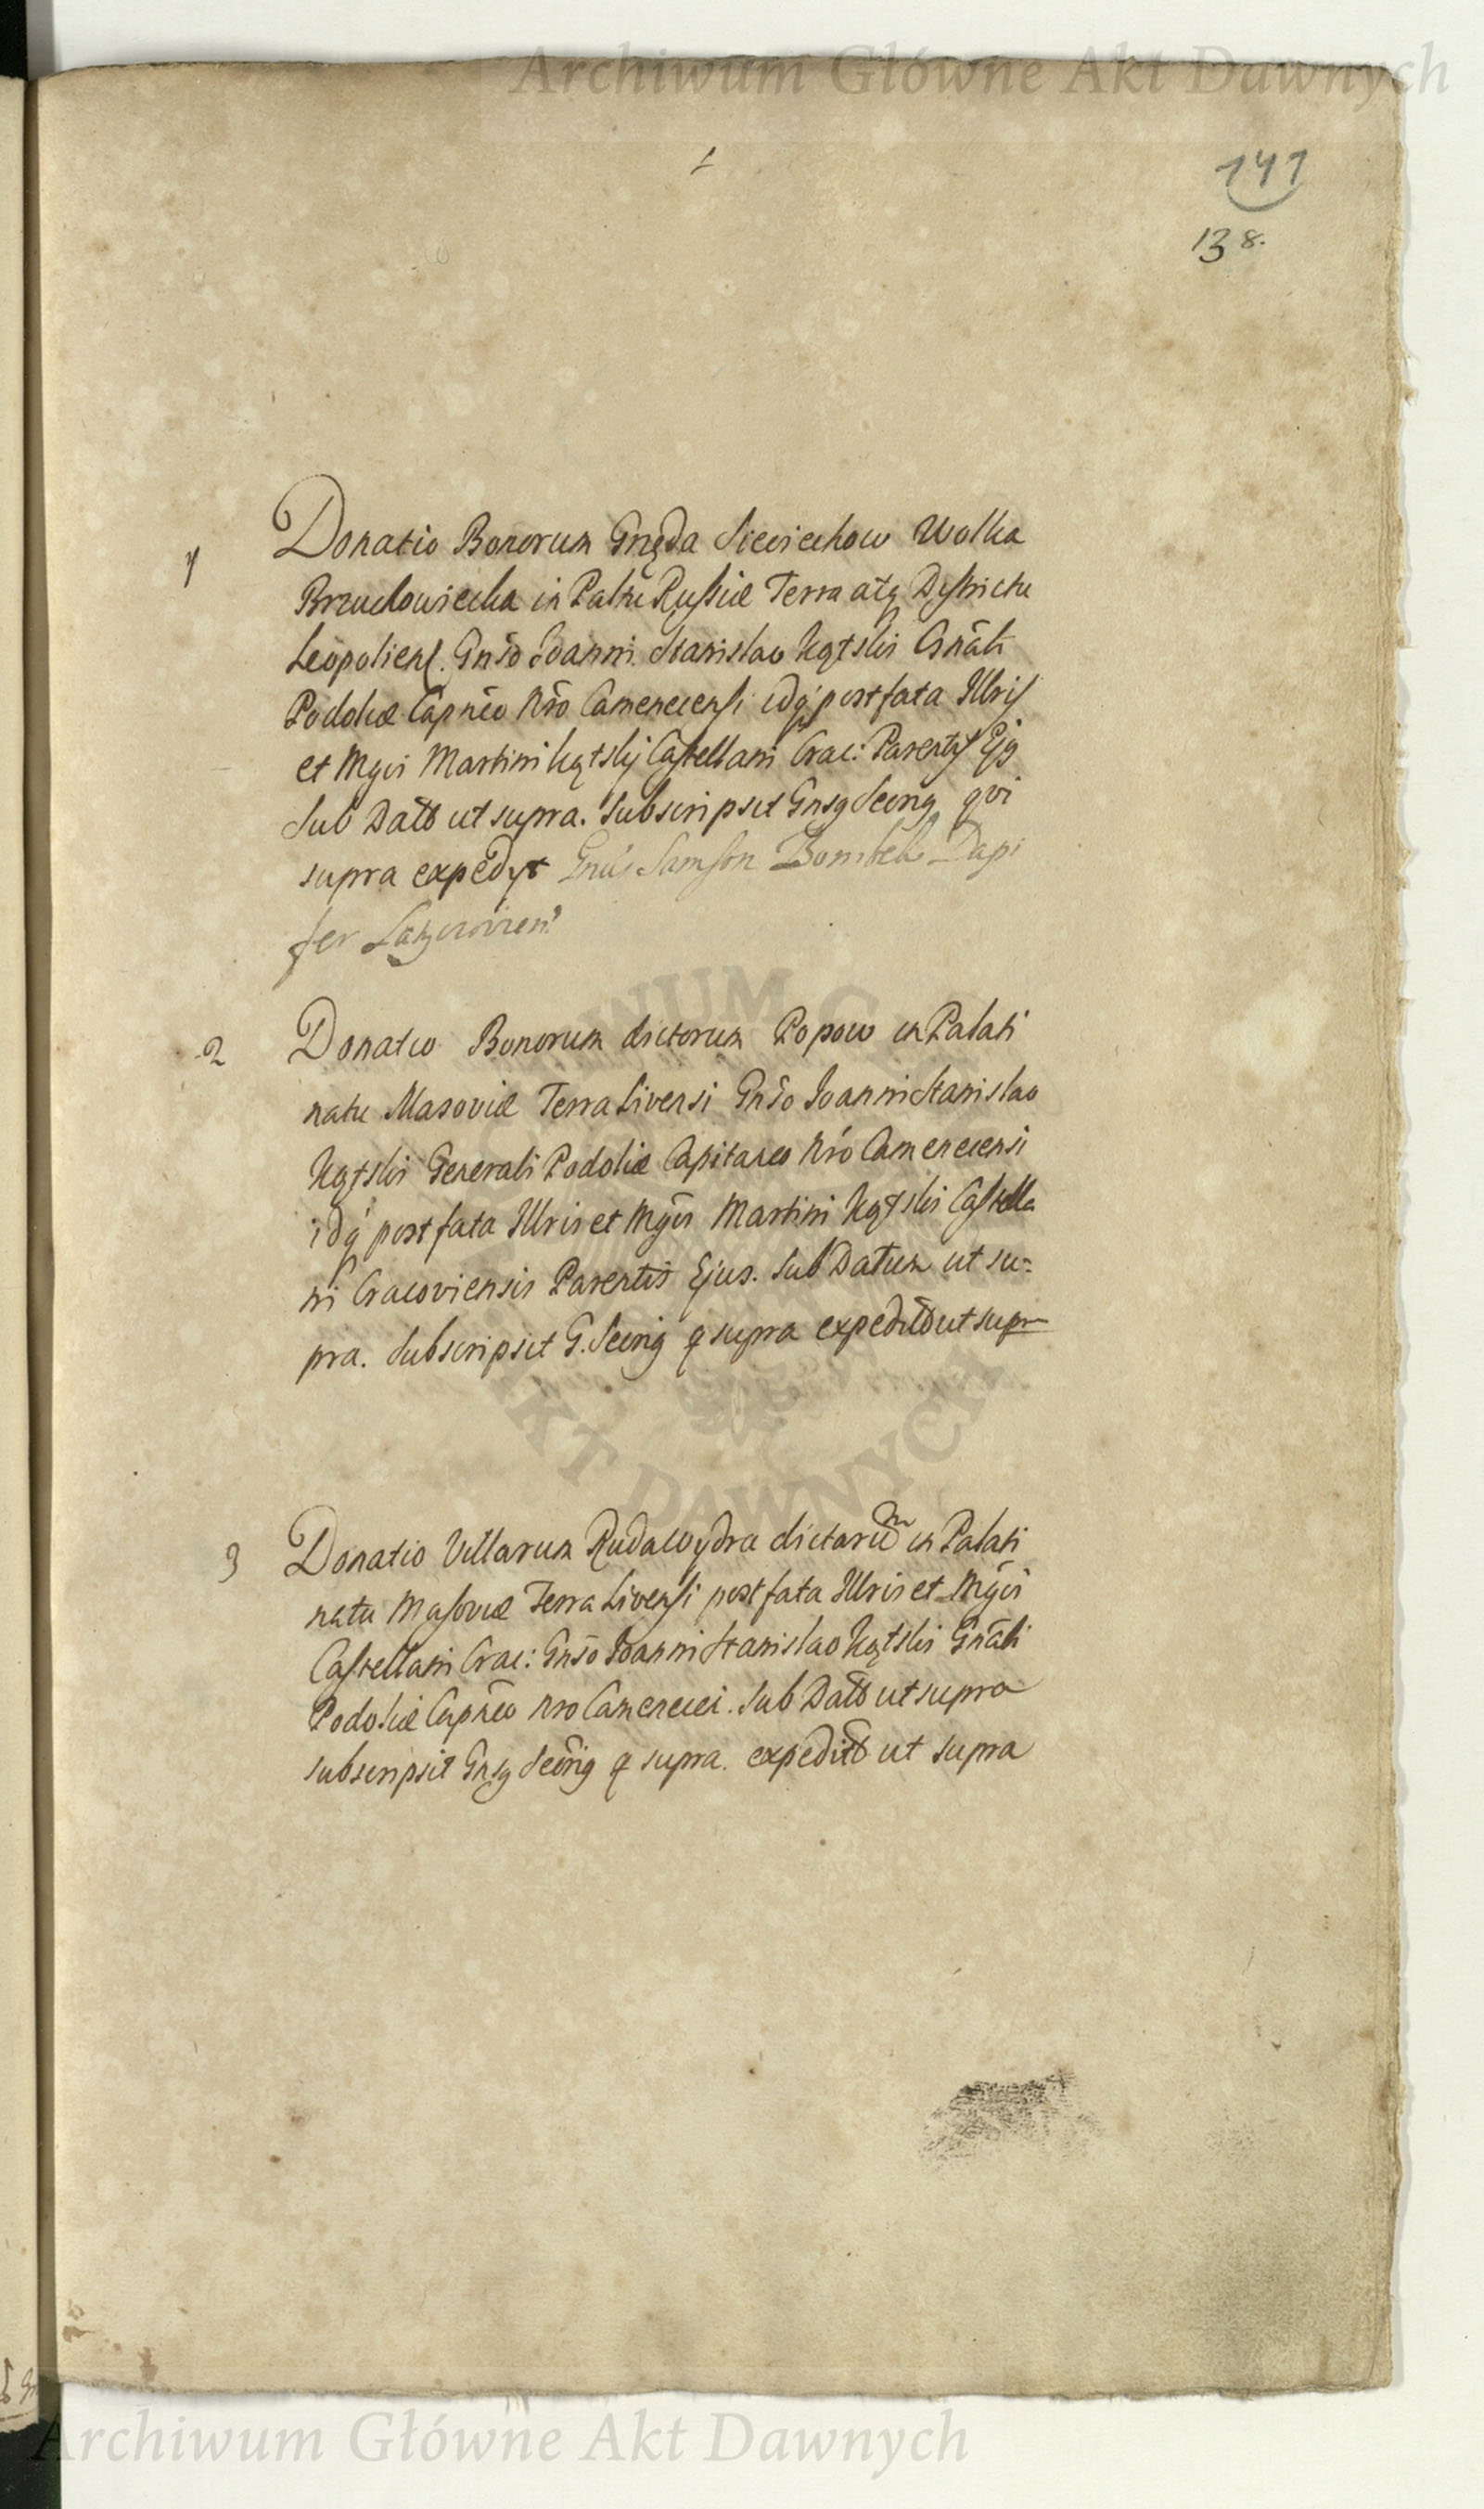 Archiwum Główne Akt Dawnych
1
141
138.
1 Donatio Bonorum Gręda Sieciechow Wolka
Brzuchowiecka in Pāltu Russiæ Terra atq Districtu
Leopolien. Gnso Joanni Stanislao Kątski Gnāli
Podoliæ Capnēo Nrō Camenecensi idq post fata Illris
et Mgci Martini Kątskij Castellani Crac: Parentis Ejq
Sub Datō ut supra. Subscripsit Gnsq Secrig qvi
supra expedyt Gnus Samson Bombek Dapi
fer
2 Donatio Bonorum dictorum Popow in Palati
natu Masoviæ Terra Livensi Gnso Joanni Stanislao
Kątski Generali Podoliæ Capitaneo Nrō Camenecensi
idq post fata Illris et Mgci Martini Kątski Castella
ni Cracoviensis Parentis Ejus. Sub Datum ut su=
pra. Subscripsit G. Secrig q supra expeditō ut supra
3 Donatio Villarum Ruda Wydra dictarum in Palati
natu Masoviæ Terra Livensi post fata Illris et Mgci
Castellani Crac: Gnso Joanni Stanislao Kątski Gnāli
Podoliæ Capnēo Nro Camenecei. Sub Datō ut supra
subscripsit Gnsq Secrig q supra. expeditō ut supra
ARCHIWUM GŁÓWNE AKT DAWNYCH
Archiwum Główne Akt Dawnych